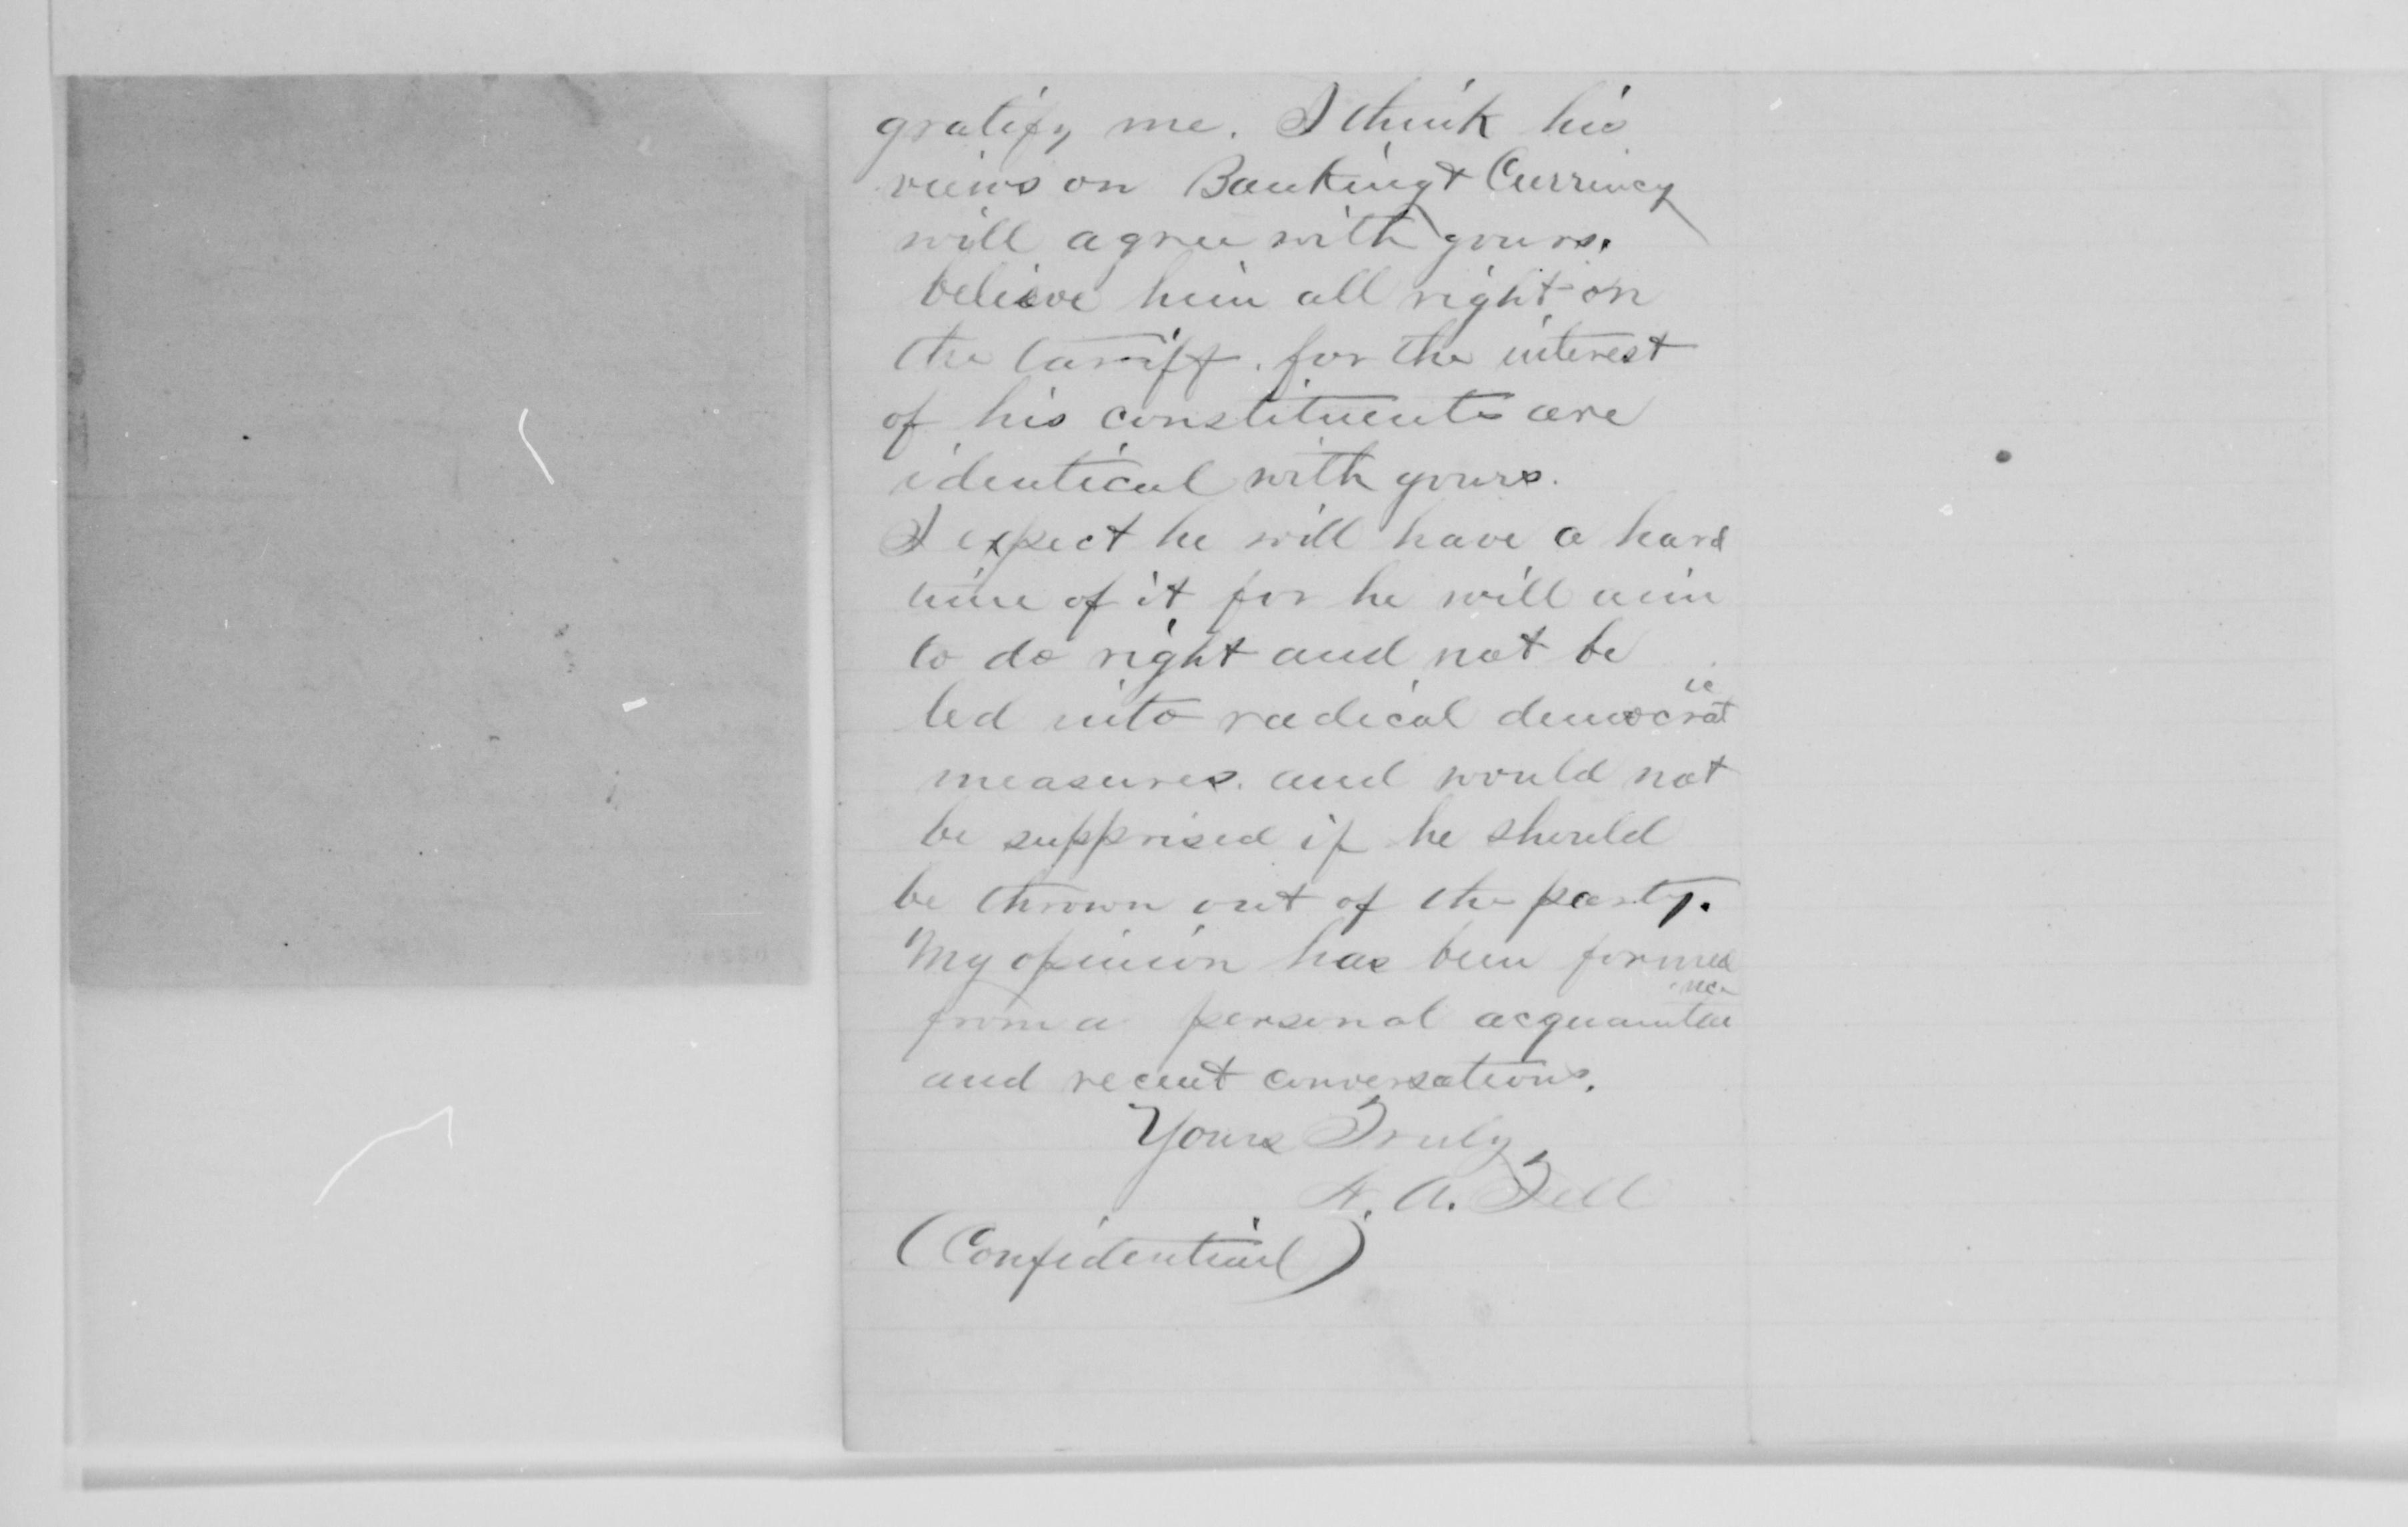 gratify me. I think his
views on Banking & Currency
will agree with yours.
believe him all right on
the tariff. for the interest
of his constituents are
identical with yours.
I expect he will have a hard
time of it for he will aim
to do right and not be
led into radical democratic
measures. and would not
be supprised if he should
be thrown out of the party.
My opinion has been formed
from a personal acquaintance
and recent conversations.
Yours Truly
A. Tell
(Confidential)